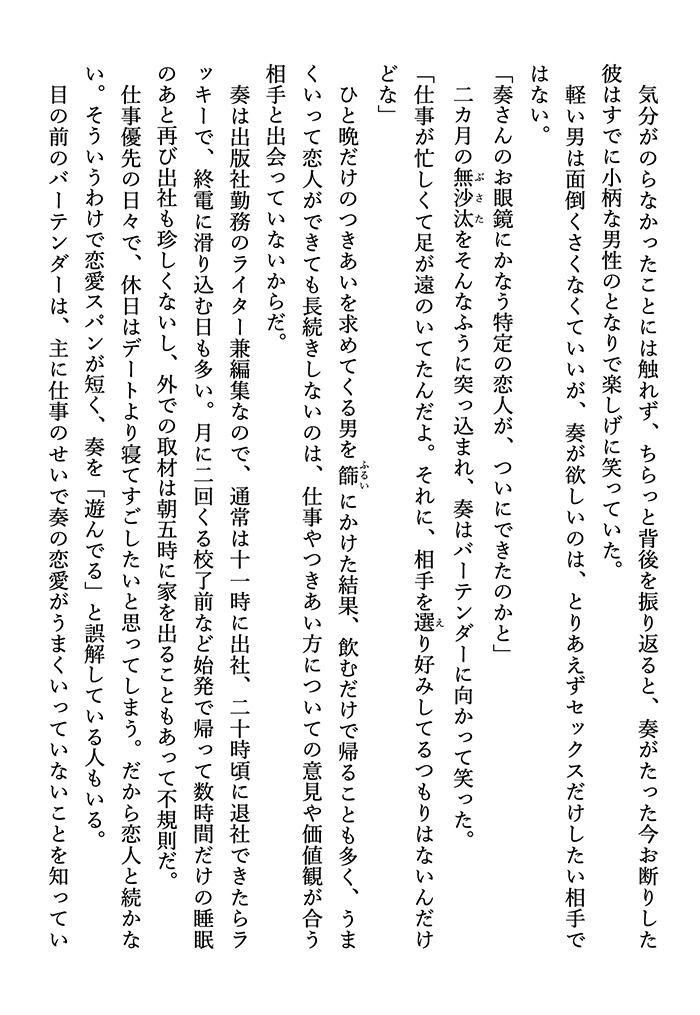 気分がのらなかったことには触れず、ちらっと背後を振り返ると、奏がたった今お断りした
彼はすでに小柄な男性のとなりで楽しげに笑っていた。
軽い男は面倒くさくなくていいが、奏が欲しいのは、とりあえずセックスだけしたい相手で
はない。
「奏さんのお眼鏡にかなう特定の恋人が、ついにできたのかと」
二カ月の無沙汰をそんなふうに突っ込まれ、奏はバーテンダーに向かって笑った。
「仕事が忙しくて足が遠のいてたんだよ。それに、相手を選り好みしてるつもりはないんだけ
どな」
ひと晩だけのつきあいを求めてくる男を篩にかけた結果、飲むだけで帰ることも多く、うま
くいって恋人ができても長続きしないのは、仕事やつきあい方についての意見や価値観が合う
相手と出会っていないからだ。
奏は出版社勤務のライター兼編集なので、通常は十一時に出社、二十時頃に退社できたらラ
ッキーで、終電に滑り込む日も多い。月に二回くる校了前など始発で帰って数時間だけの睡眠
のあと再び出社も珍しくないし、外での取材は朝五時に家を出ることもあって不規則だ。
仕事優先の日々で、休日はデートより寝てすごしたいと思ってしまう。だから恋人と続かな
い。そういうわけで恋愛スパンが短く、奏を「遊んでる」と誤解している人もいる。
目の前のバーテンダーは、主に仕事のせいで奏の恋愛がうまくいっていないことを知ってい